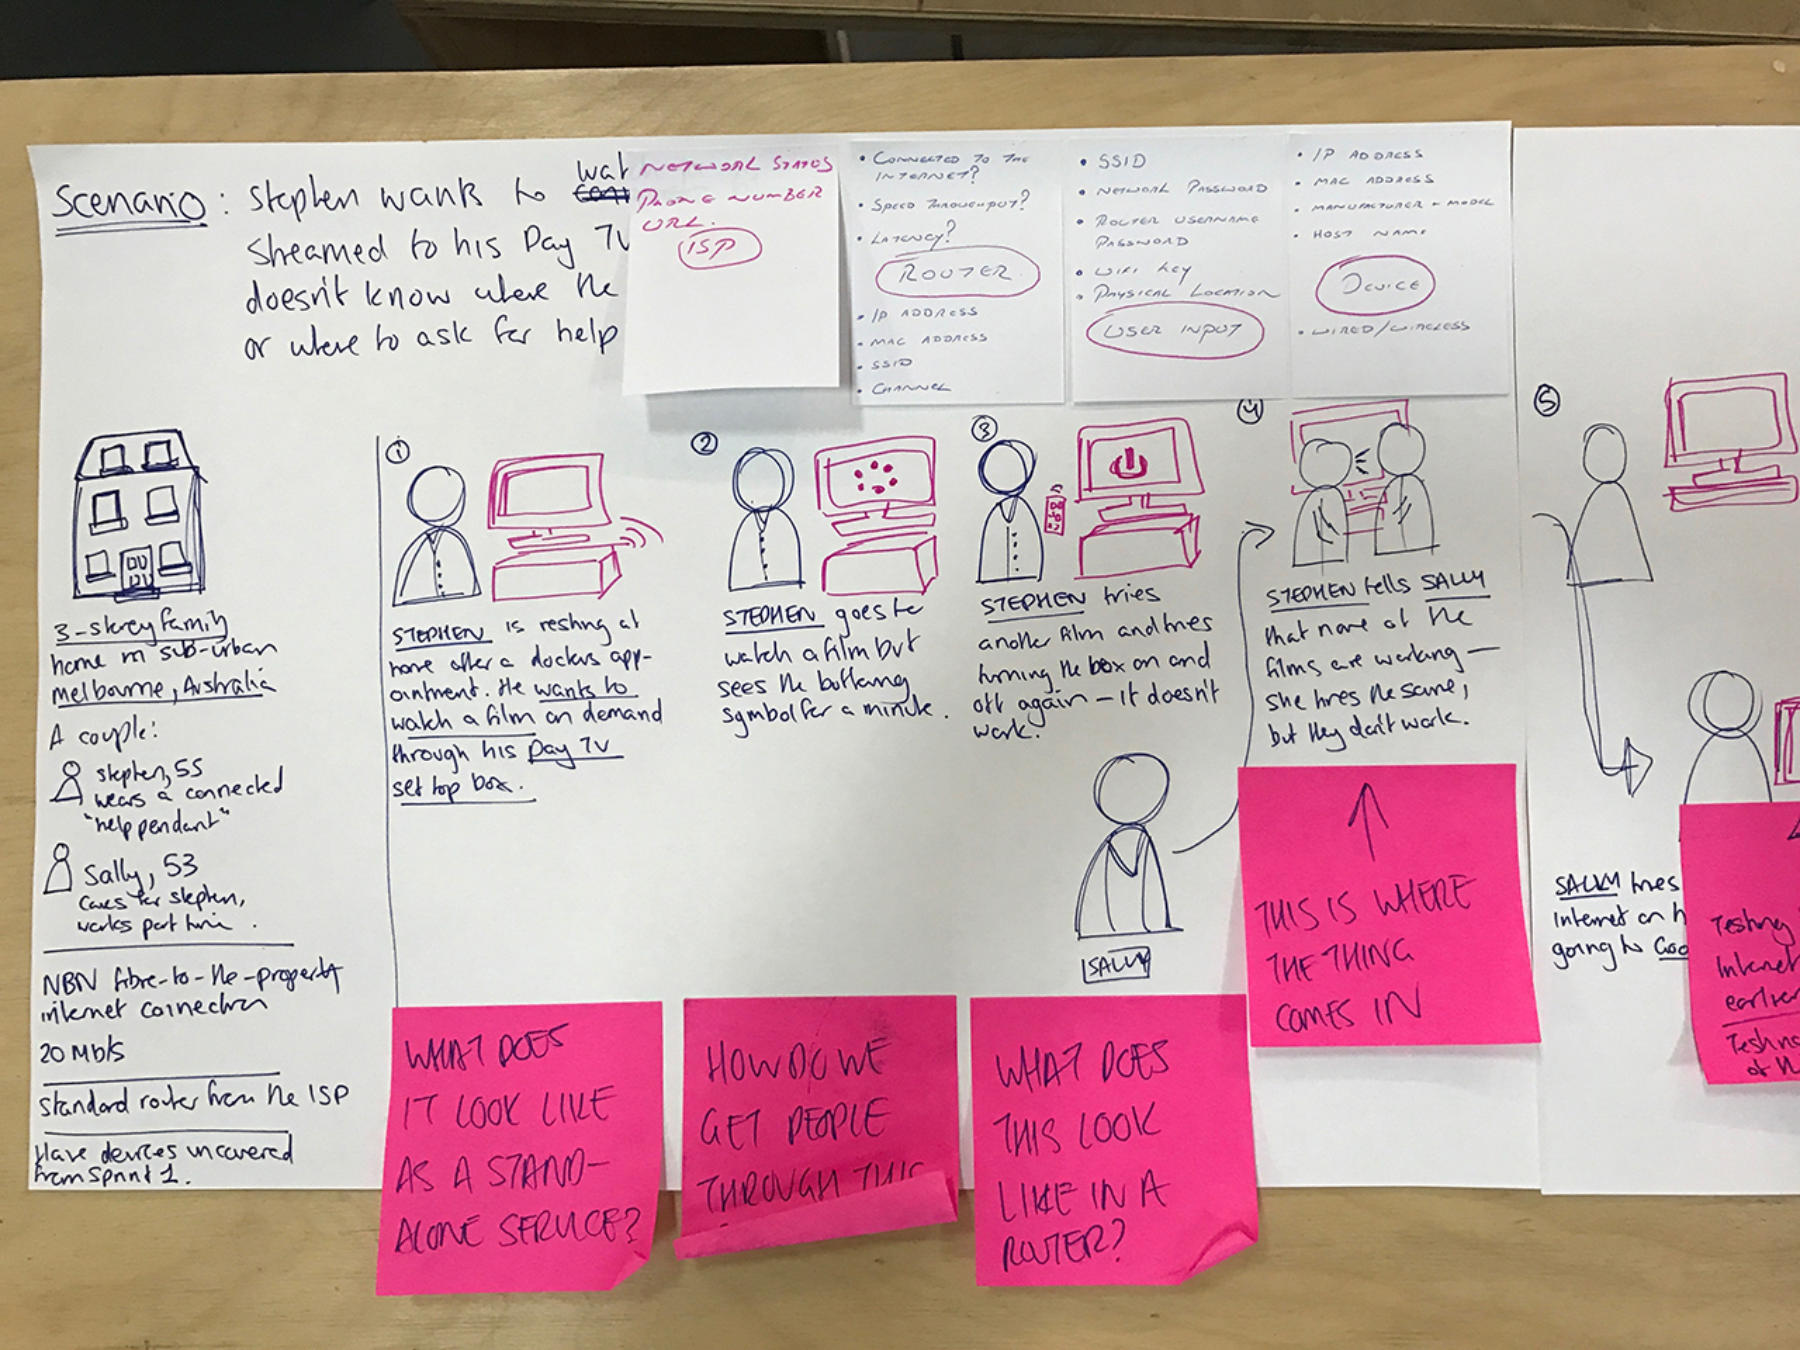 Scenario: Stephen wants to wat
streamed to his Pay TV
doesn't know where the
or where to ask for help
NETWORK STATUS
PHONE NUMBER
URL.
ISP
• CONNECTED TO THE
INTERNET?
• SPEED THROUGHPUT?
• LATENCY?
ROUTER
• IP ADDRESS
• MAC ADDRESS
• SSID
• CHANNEL
• SSID
• NETWORK PASSWORD
• ROUTER USERNAME
PASSWORD
• WIFI KEY
• PHYSICAL LOCATION
USER INPUT
• IP ADDRESS
• MAC ADDRESS
• MANUFACTURER + MODEL
• HOST NAME
DEVICE
• WIRED/WIRELESS
3-storey family
home in sub-urban
Melbourne, Australia
A couple:
Stephen, 55
wears a connected
"help pendant"
Sally, 53
Cares for Stephen,
works part time.
NBN fibre-to-the-property
internet connection
20 Mb/s
Standard router from the ISP
Have devices uncovered
from Sprint 1.
1
STEPHEN is resting at
home after a doctors app-
ointment. He wants to
watch a film on demand
through his Pay TV
set top box.
2
STEPHEN goes to
watch a film but
sees the buffering
symbol for a minute.
3
STEPHEN tries
another film and tries
turning the box on and
off again - it doesn't
work.
SALLY
4
STEPHEN tells SALLY
that none of the
films are working —
she tries the same,
but they don't work.
5
SALLY tries
internet on h
going to Goo
WHAT DOES
IT LOOK LIKE
AS A STAND-
ALONE SERVICE?
HOW DO WE
GET PEOPLE
THROUGH THIS
WHAT DOES
THIS LOOK
LIKE IN A
ROUTER?
THIS IS WHERE
THE THING
COMES IN
Testing
Internet
earlier
Testing
of th